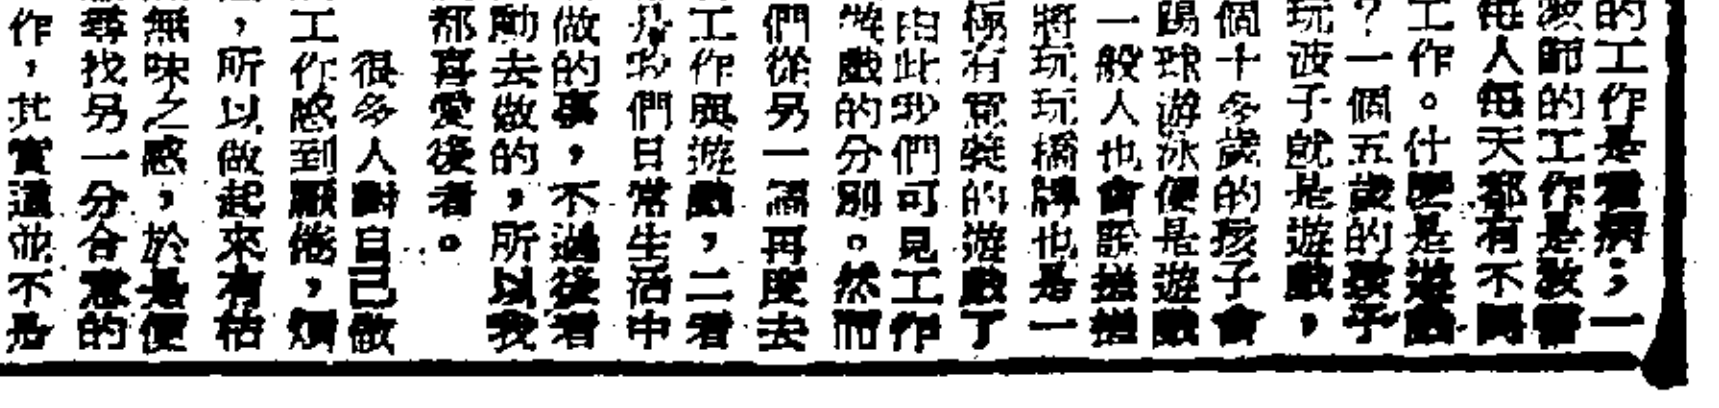 的工作是看病；一
教師的工作是教書
每人每天都有不同
工作。什麼是遊戲
？一個五歲的孩子
玩波子就是遊戲，
個十多歲的孩子會
踢球游泳便是遊戲
一般人也會說搓搓
將玩玩橋牌也是一
極有意義的遊戲了
由此我們可見工作
遊戲的分別。然而
們從另一面再度去
工作與遊戲，二者
是我們日常生活中
做的事，不過後者
動去做的，所以我
都喜愛後者。
很多人對自己做
工作感到厭倦，煩
，所以做起來有枯
無味之感，於是便
尋找另一分合意的
作，其實這並不是